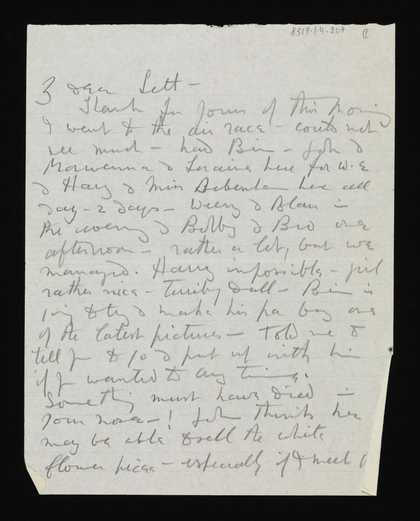 8317.1.4.307
3 dear Lett -
Thank for yours of this morning
I went to the air race - could not
see much - had Ben - John &
Morwenna & Loraine here for W.E
& Harry & Miss Debenham here all
day - 2 days - & Alan in
the evening & Bobby & Bro one
afternoon - rather a lot, but we
managed. Harry impossible - girl
rather nice - terribly dull - Ben is
trying to make his pa buy one
of the latest pictures - Told me to
tell you to & put up with him
if you wanted to any time.
Something must have died in
your nose -! John thinks he
may be able to sell the white
flower piece - especially if I meet